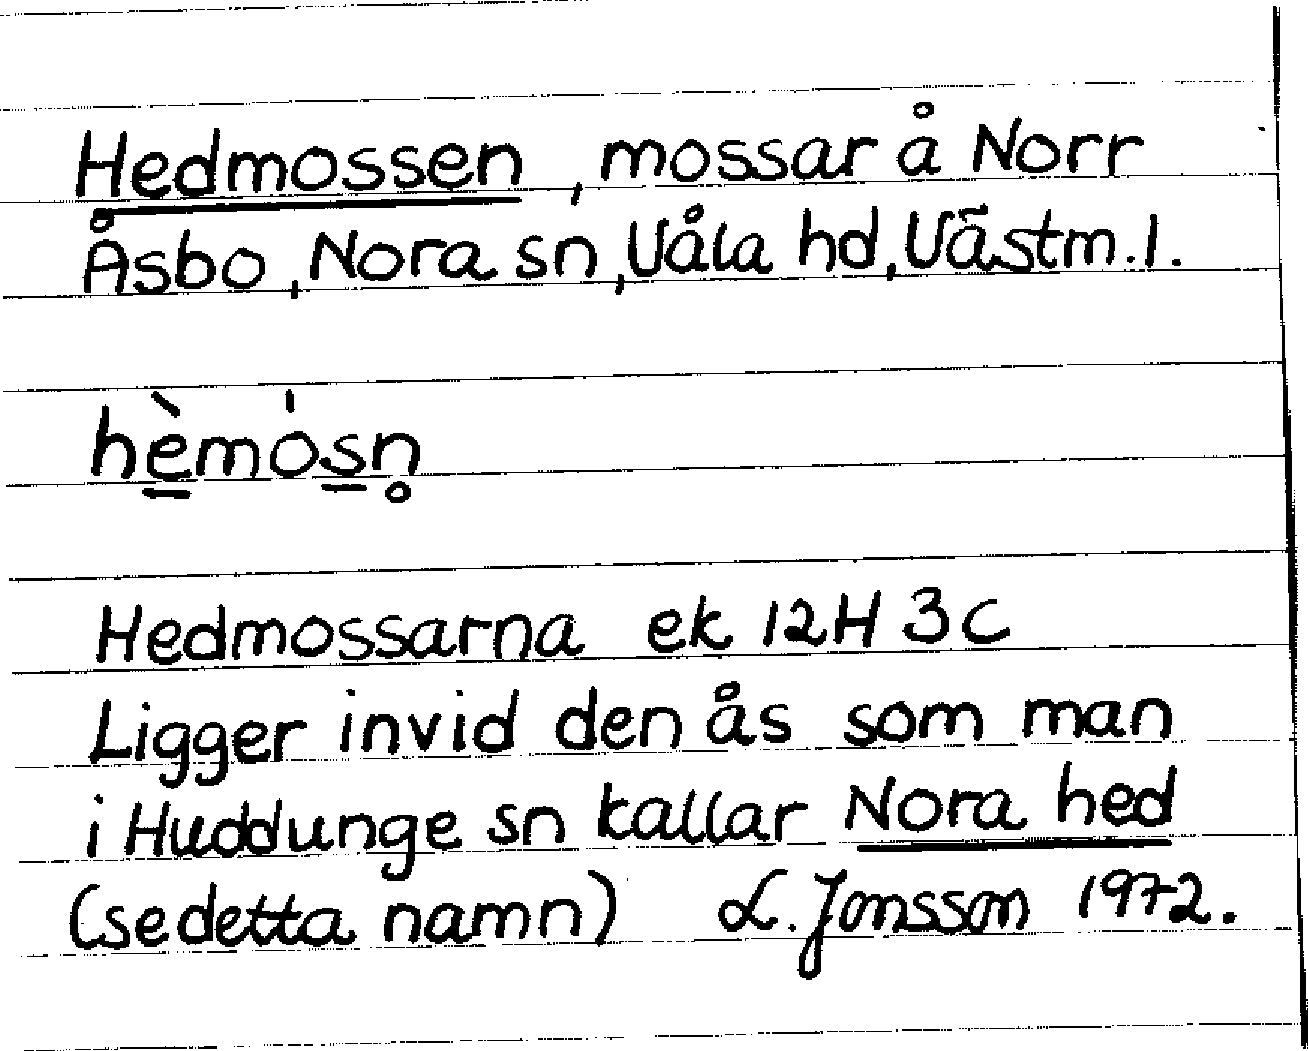 Hedmossen, mossar å Norr
Åsbo, Nora sn, Våla hd, Västm. l.
hè̱mós̱n̥
Hedmossarna ek 12H 3C
Ligger invid den ås som man
i Huddunge sn kallar Nora hed
(se detta namn) L. Jonsson 1972.